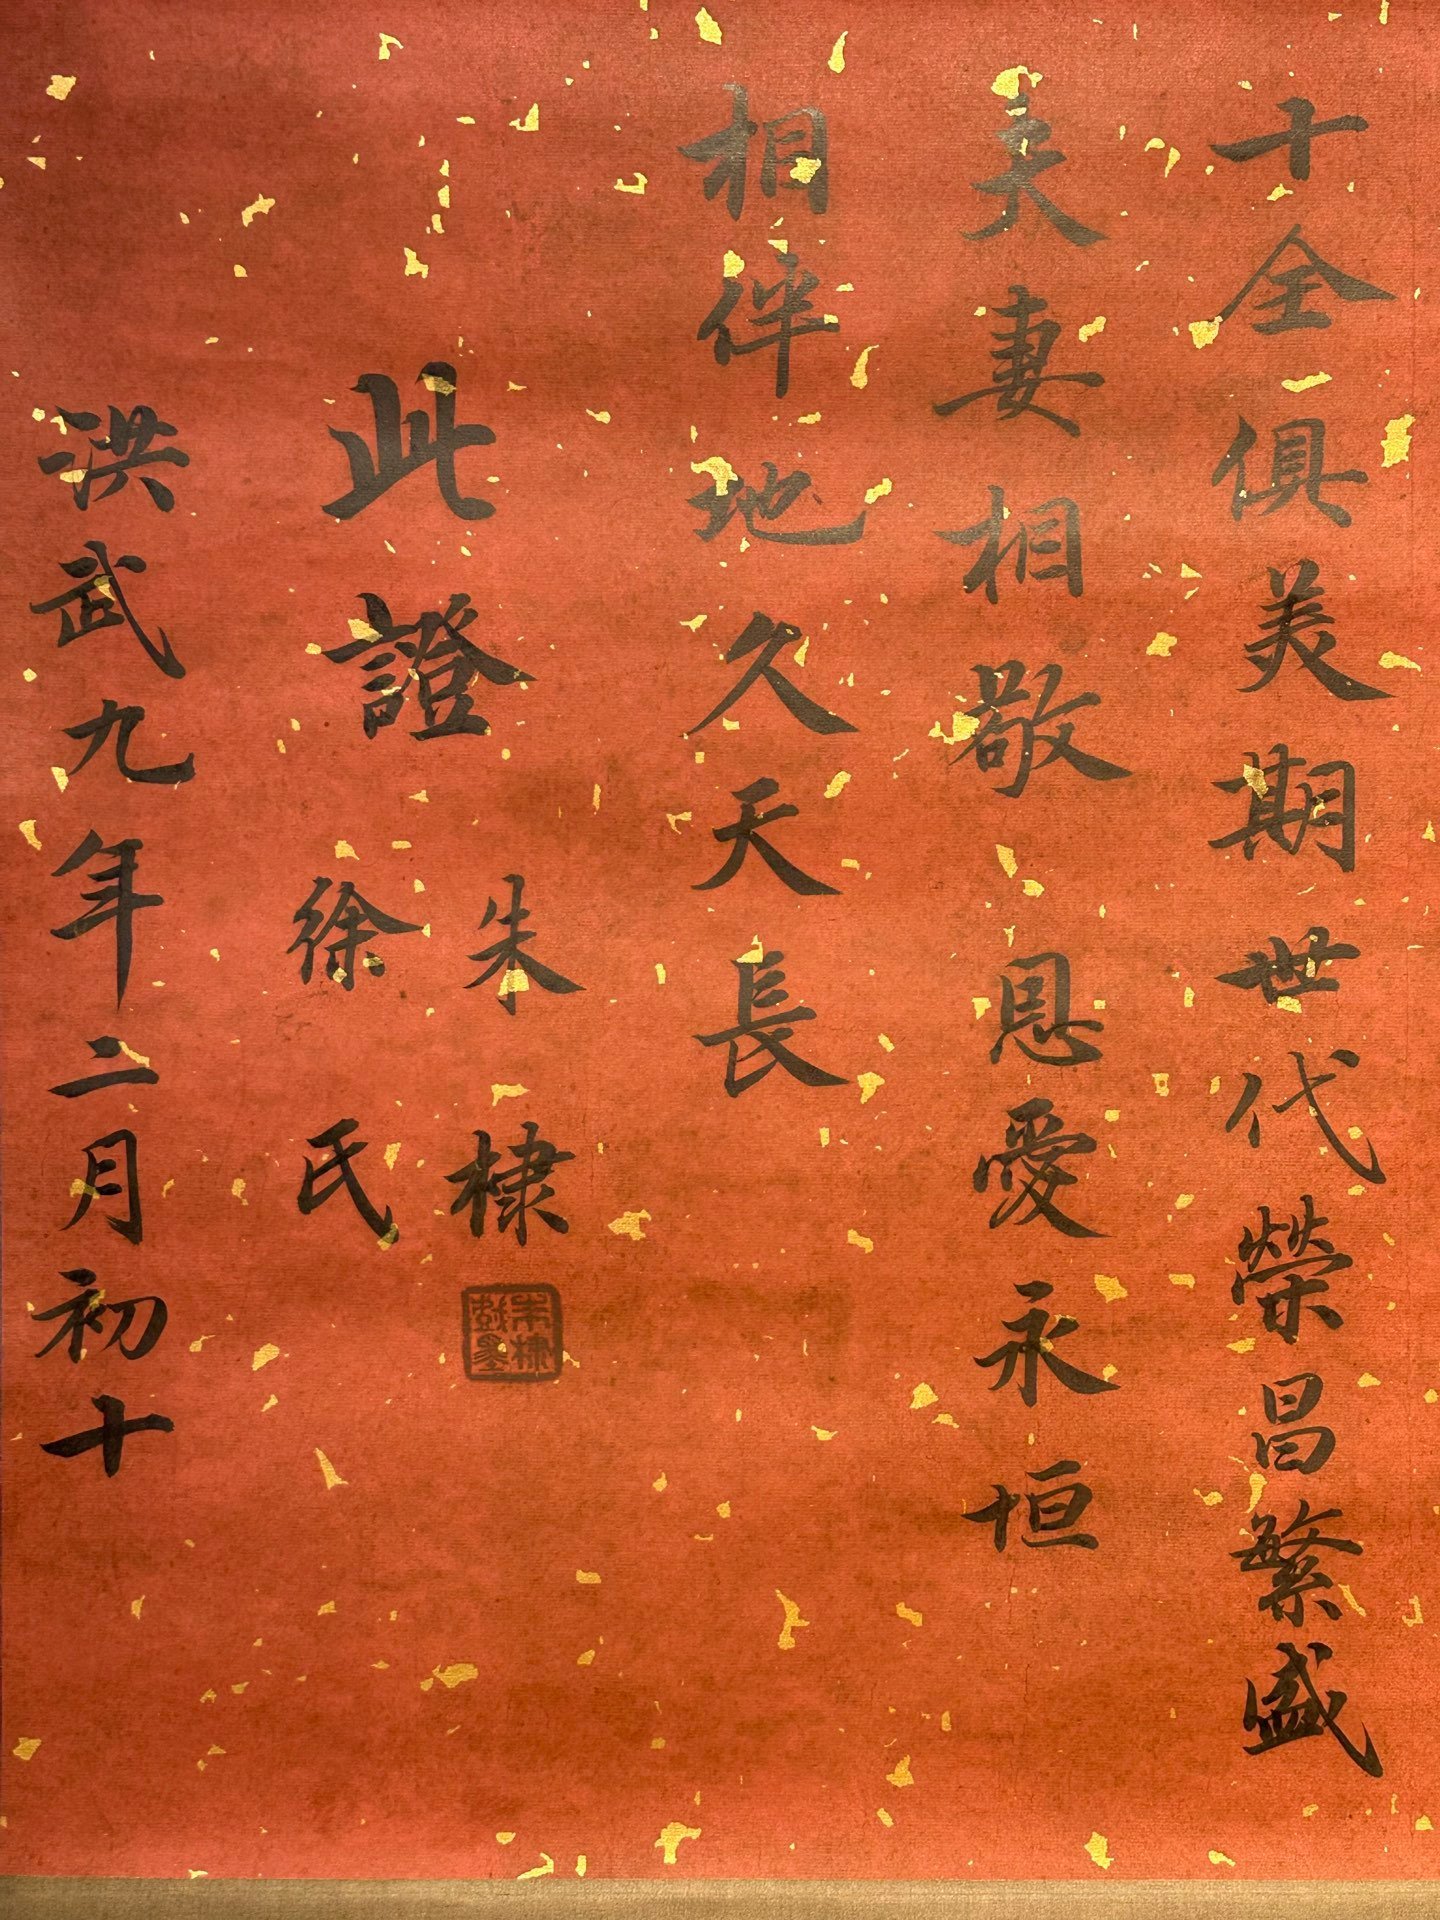 十全俱美期世代榮昌繁盛
夫妻相敬恩愛永垣
相伴地久天長
此證
朱棣
徐氏
洪武九年二月初十